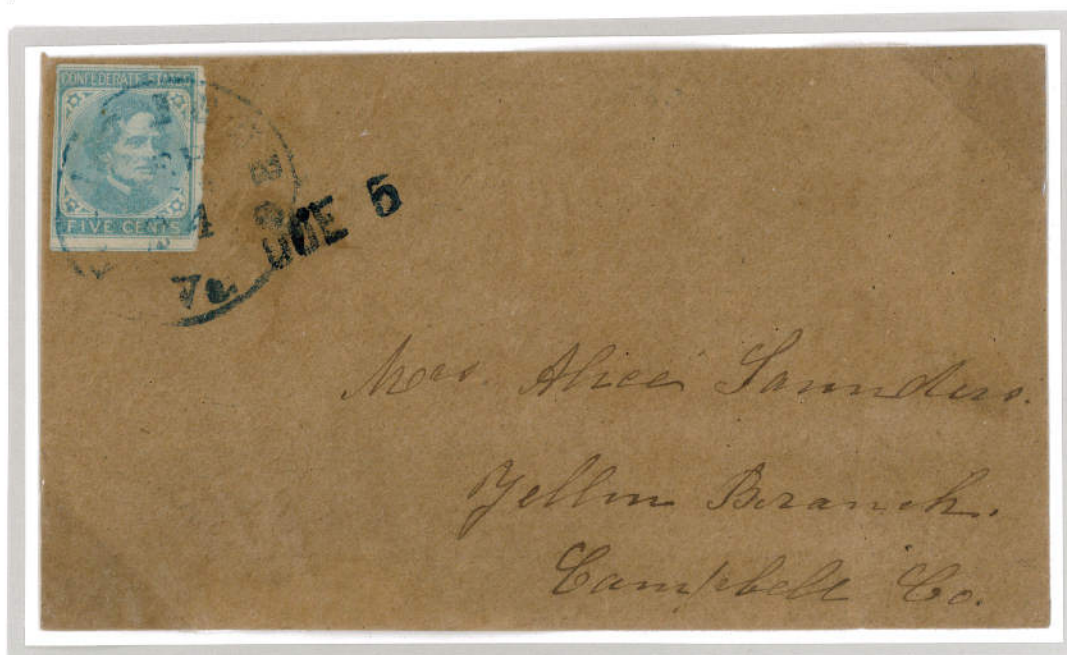 CONFEDERATE STATES
FIVE CENTS
Va.
DUE 5
Mrs. Alice Saunders.
Yellow Branch.
Campbell Co.